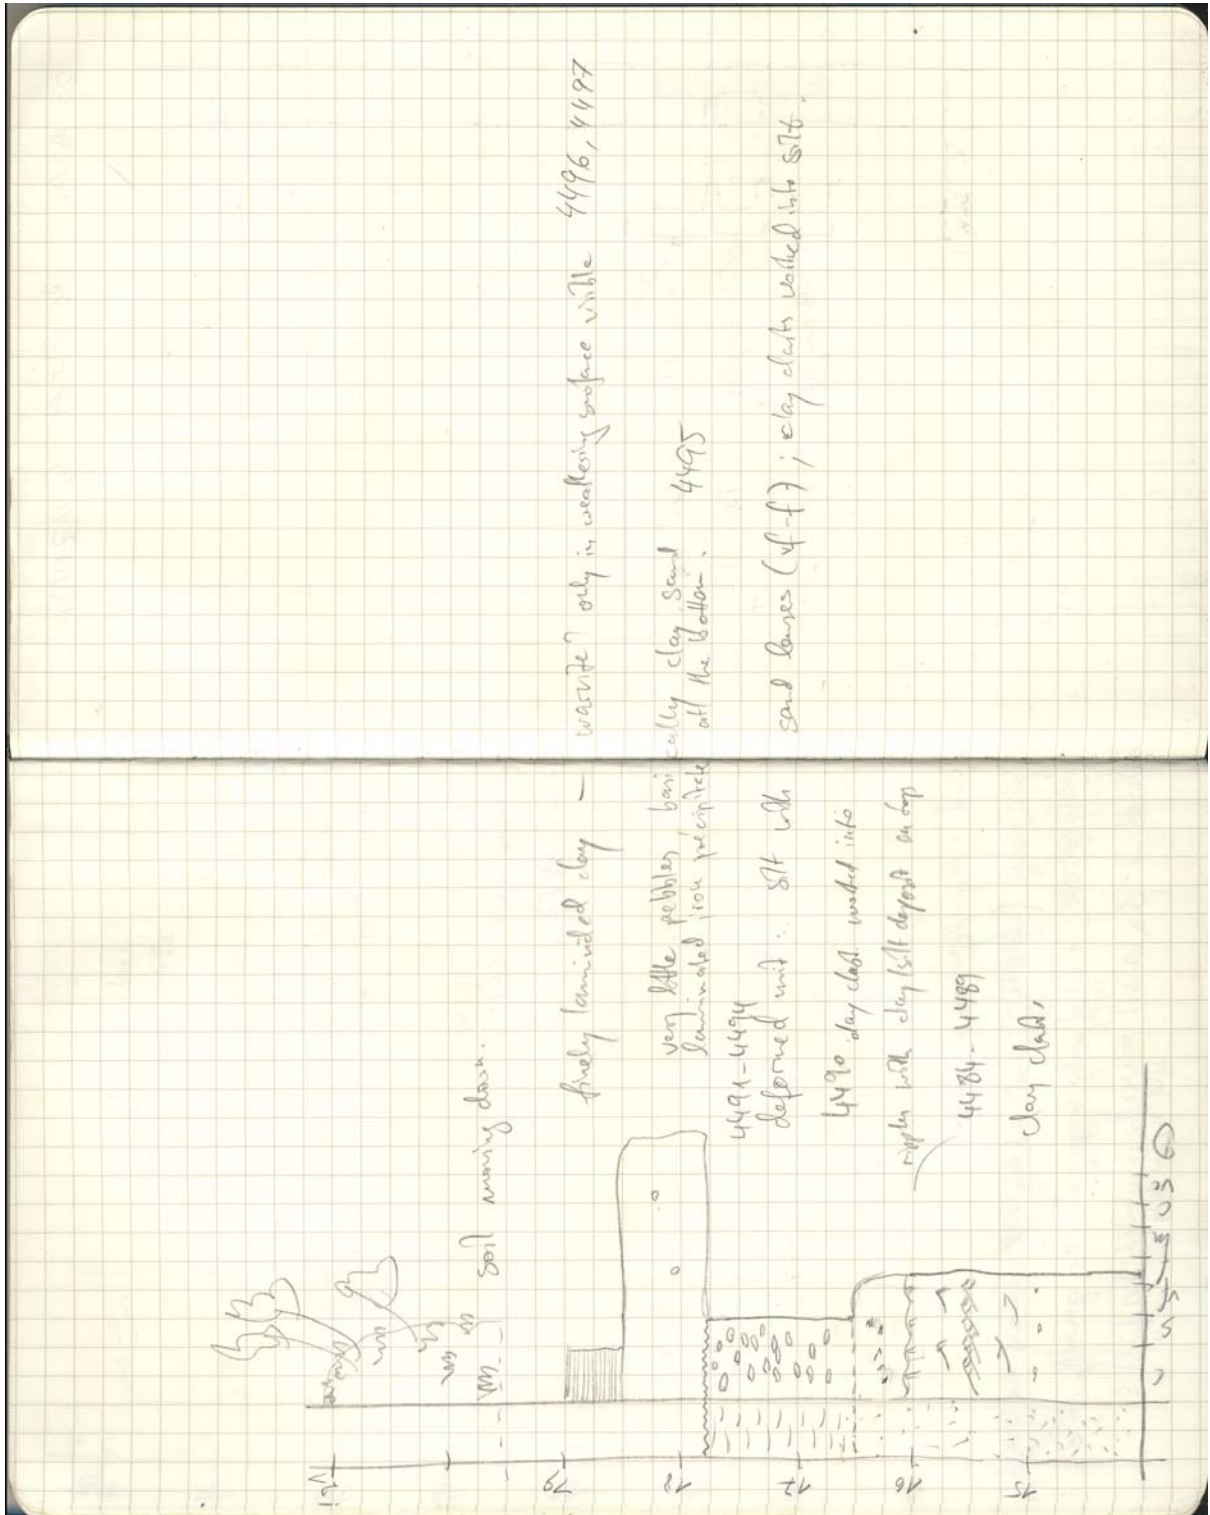 soil moving down.
19
finely laminded clay — warvite? only in weathering surface visible 4496, 4497
18
very little pebbles, basically clay, sand
laminated iron precipitate att the bottom. 4495
4491-4494
deformed unit: silt with sand lenses (vf-f); clay clasts worked into silt.
17
4490 clay clast worked into
ripples with clay/silt deposit on top
16
4484-4489
clay clasts
15